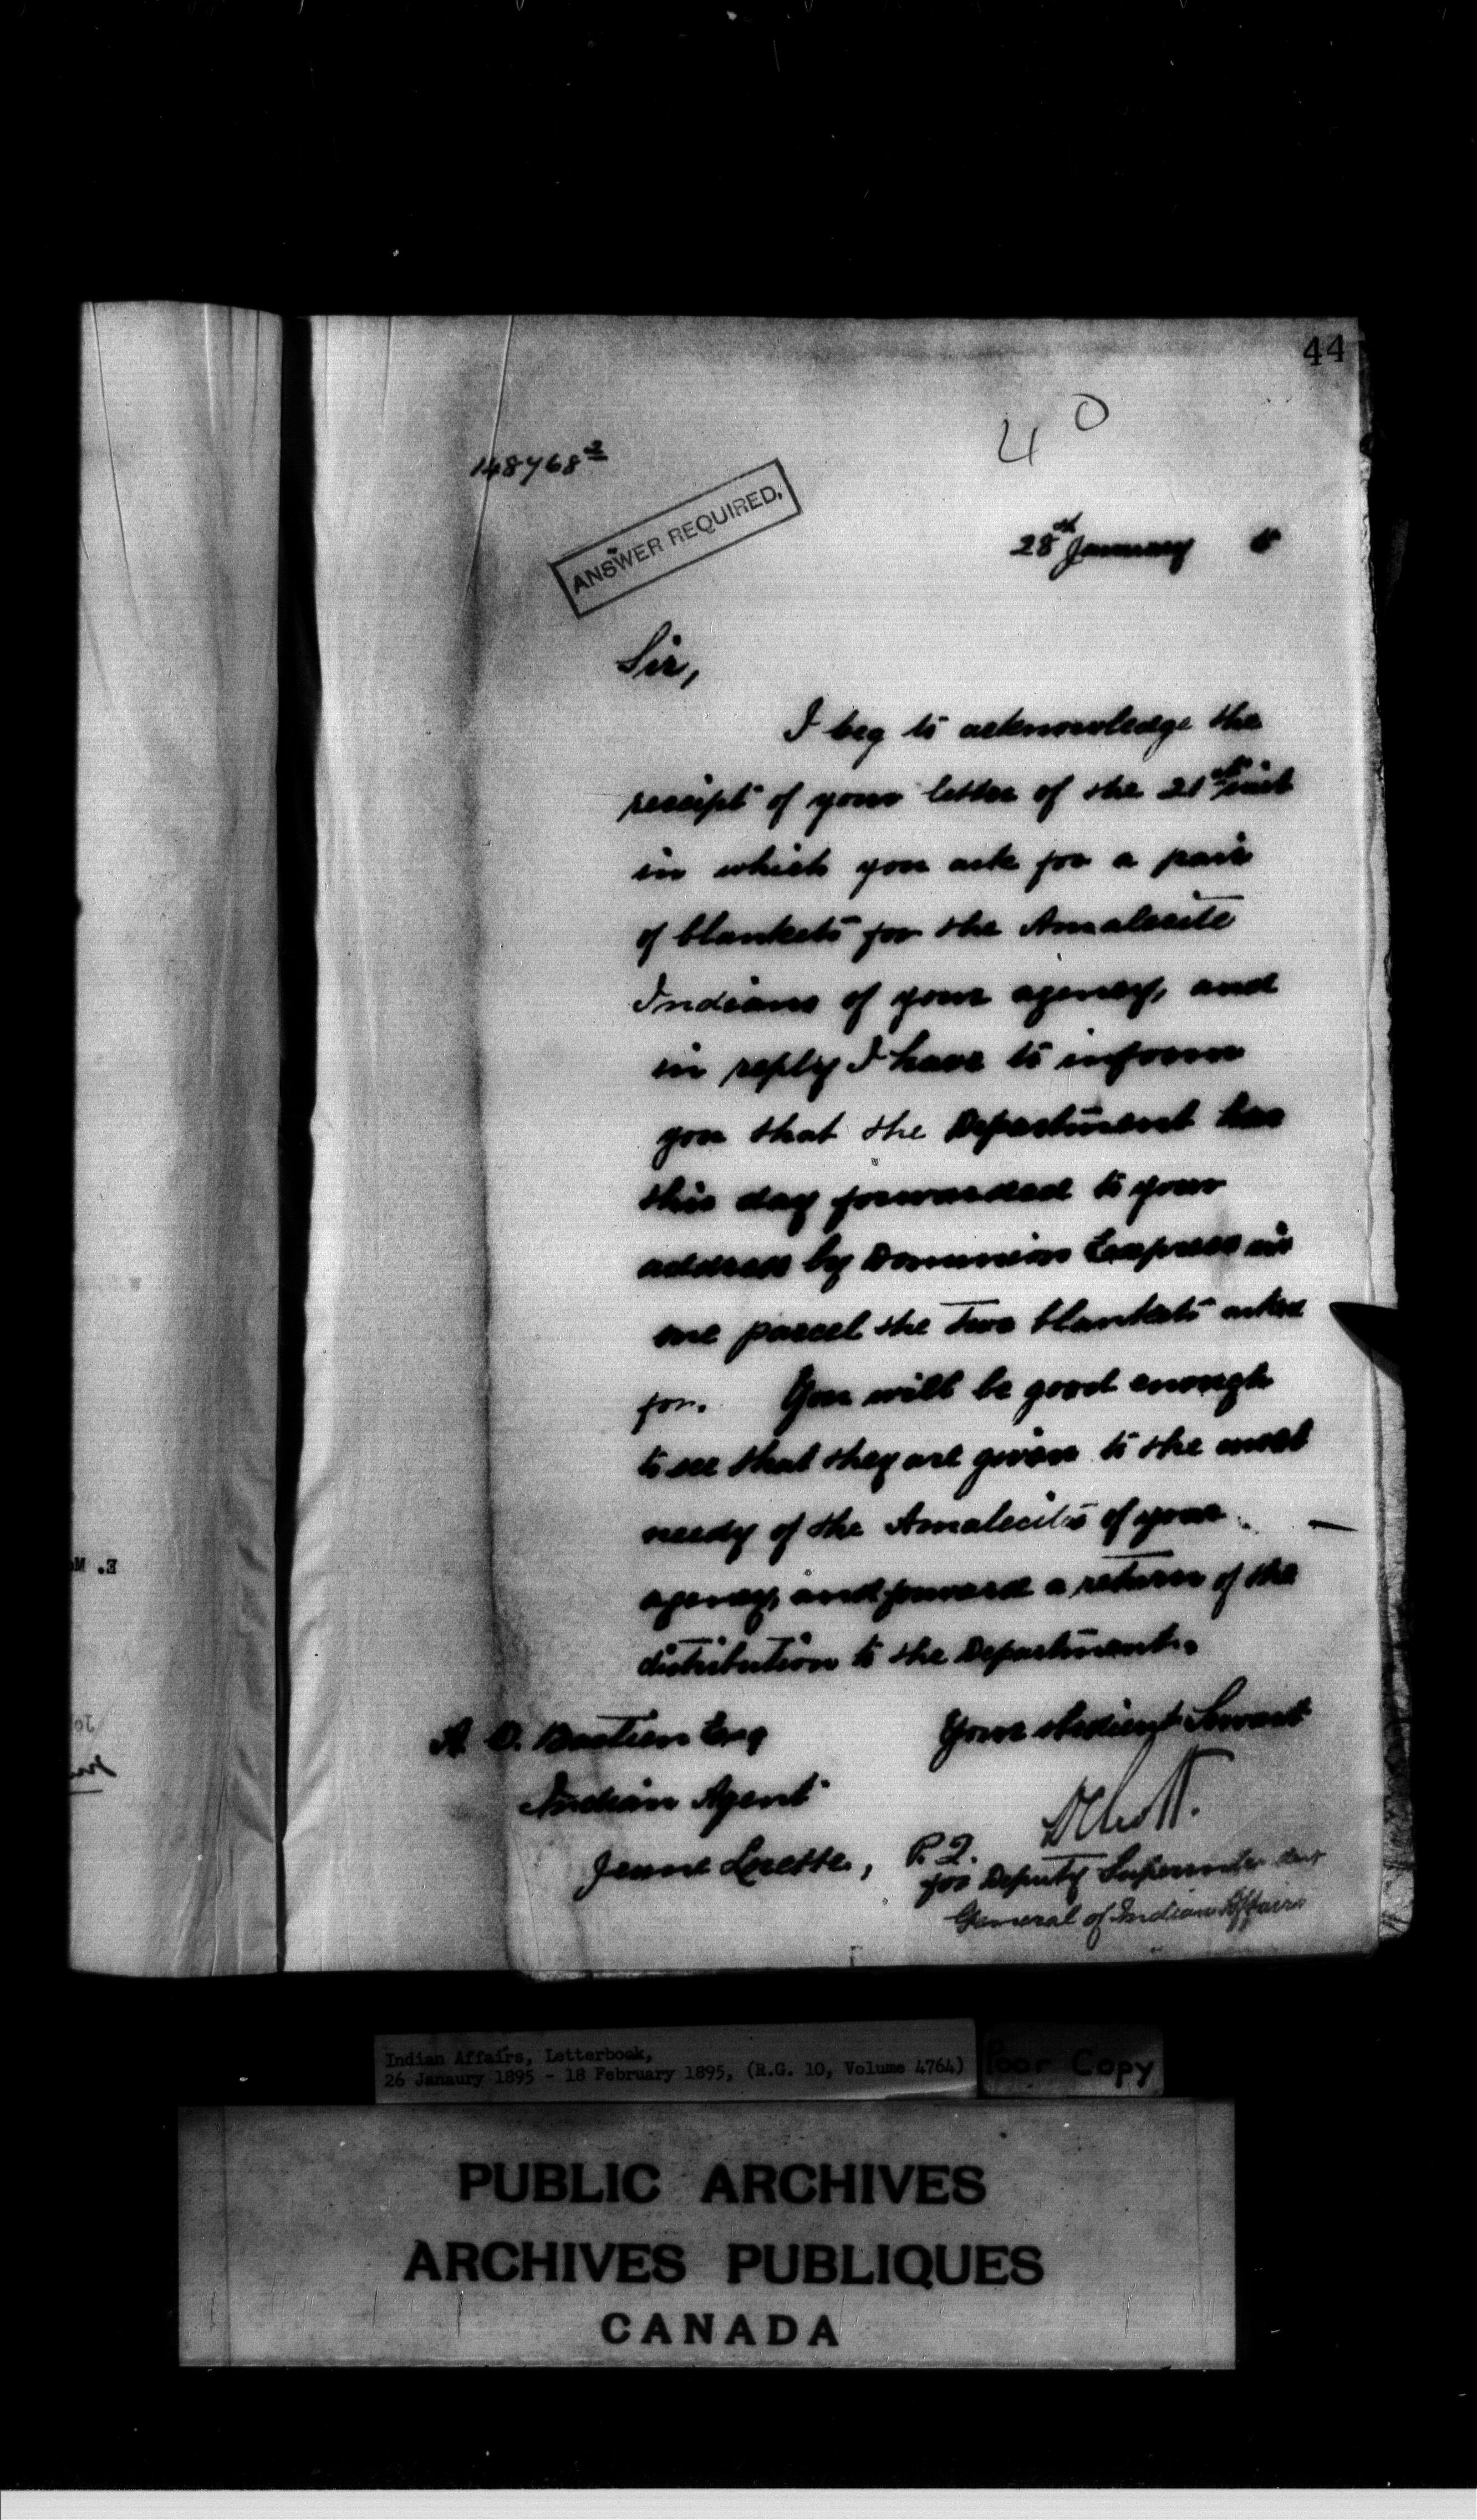 44
40
148768²
ANSWER REQUIRED.
28th January 5
Sir,
I beg to acknowledge the
receipt of your letter of the 21st inst
in which you ask for a pair
of blankets for the Amalecite
Indians of your agency, and
in reply I have to inform
you that the Department has
this day forwarded to your
address by Dominion Express in
one parcel the two blankets asked
for. You will be good enough
to see that they are given to the most
needy of the Amalecites of your
agency, and forward a return of the
distribution to the Department.
Your obedient Servant
A. O. Bastien Esq
Indian Agent
Jeune Lorette, P.Q.
for Deputy Superintendent
General of Indian Affairs
Indian Affairs, Letterbook,
26 Janaury 1895 - 18 February 1895, (R.G. 10, Volume 4764)
Poor Copy
PUBLIC ARCHIVES
ARCHIVES PUBLIQUES
CANADA